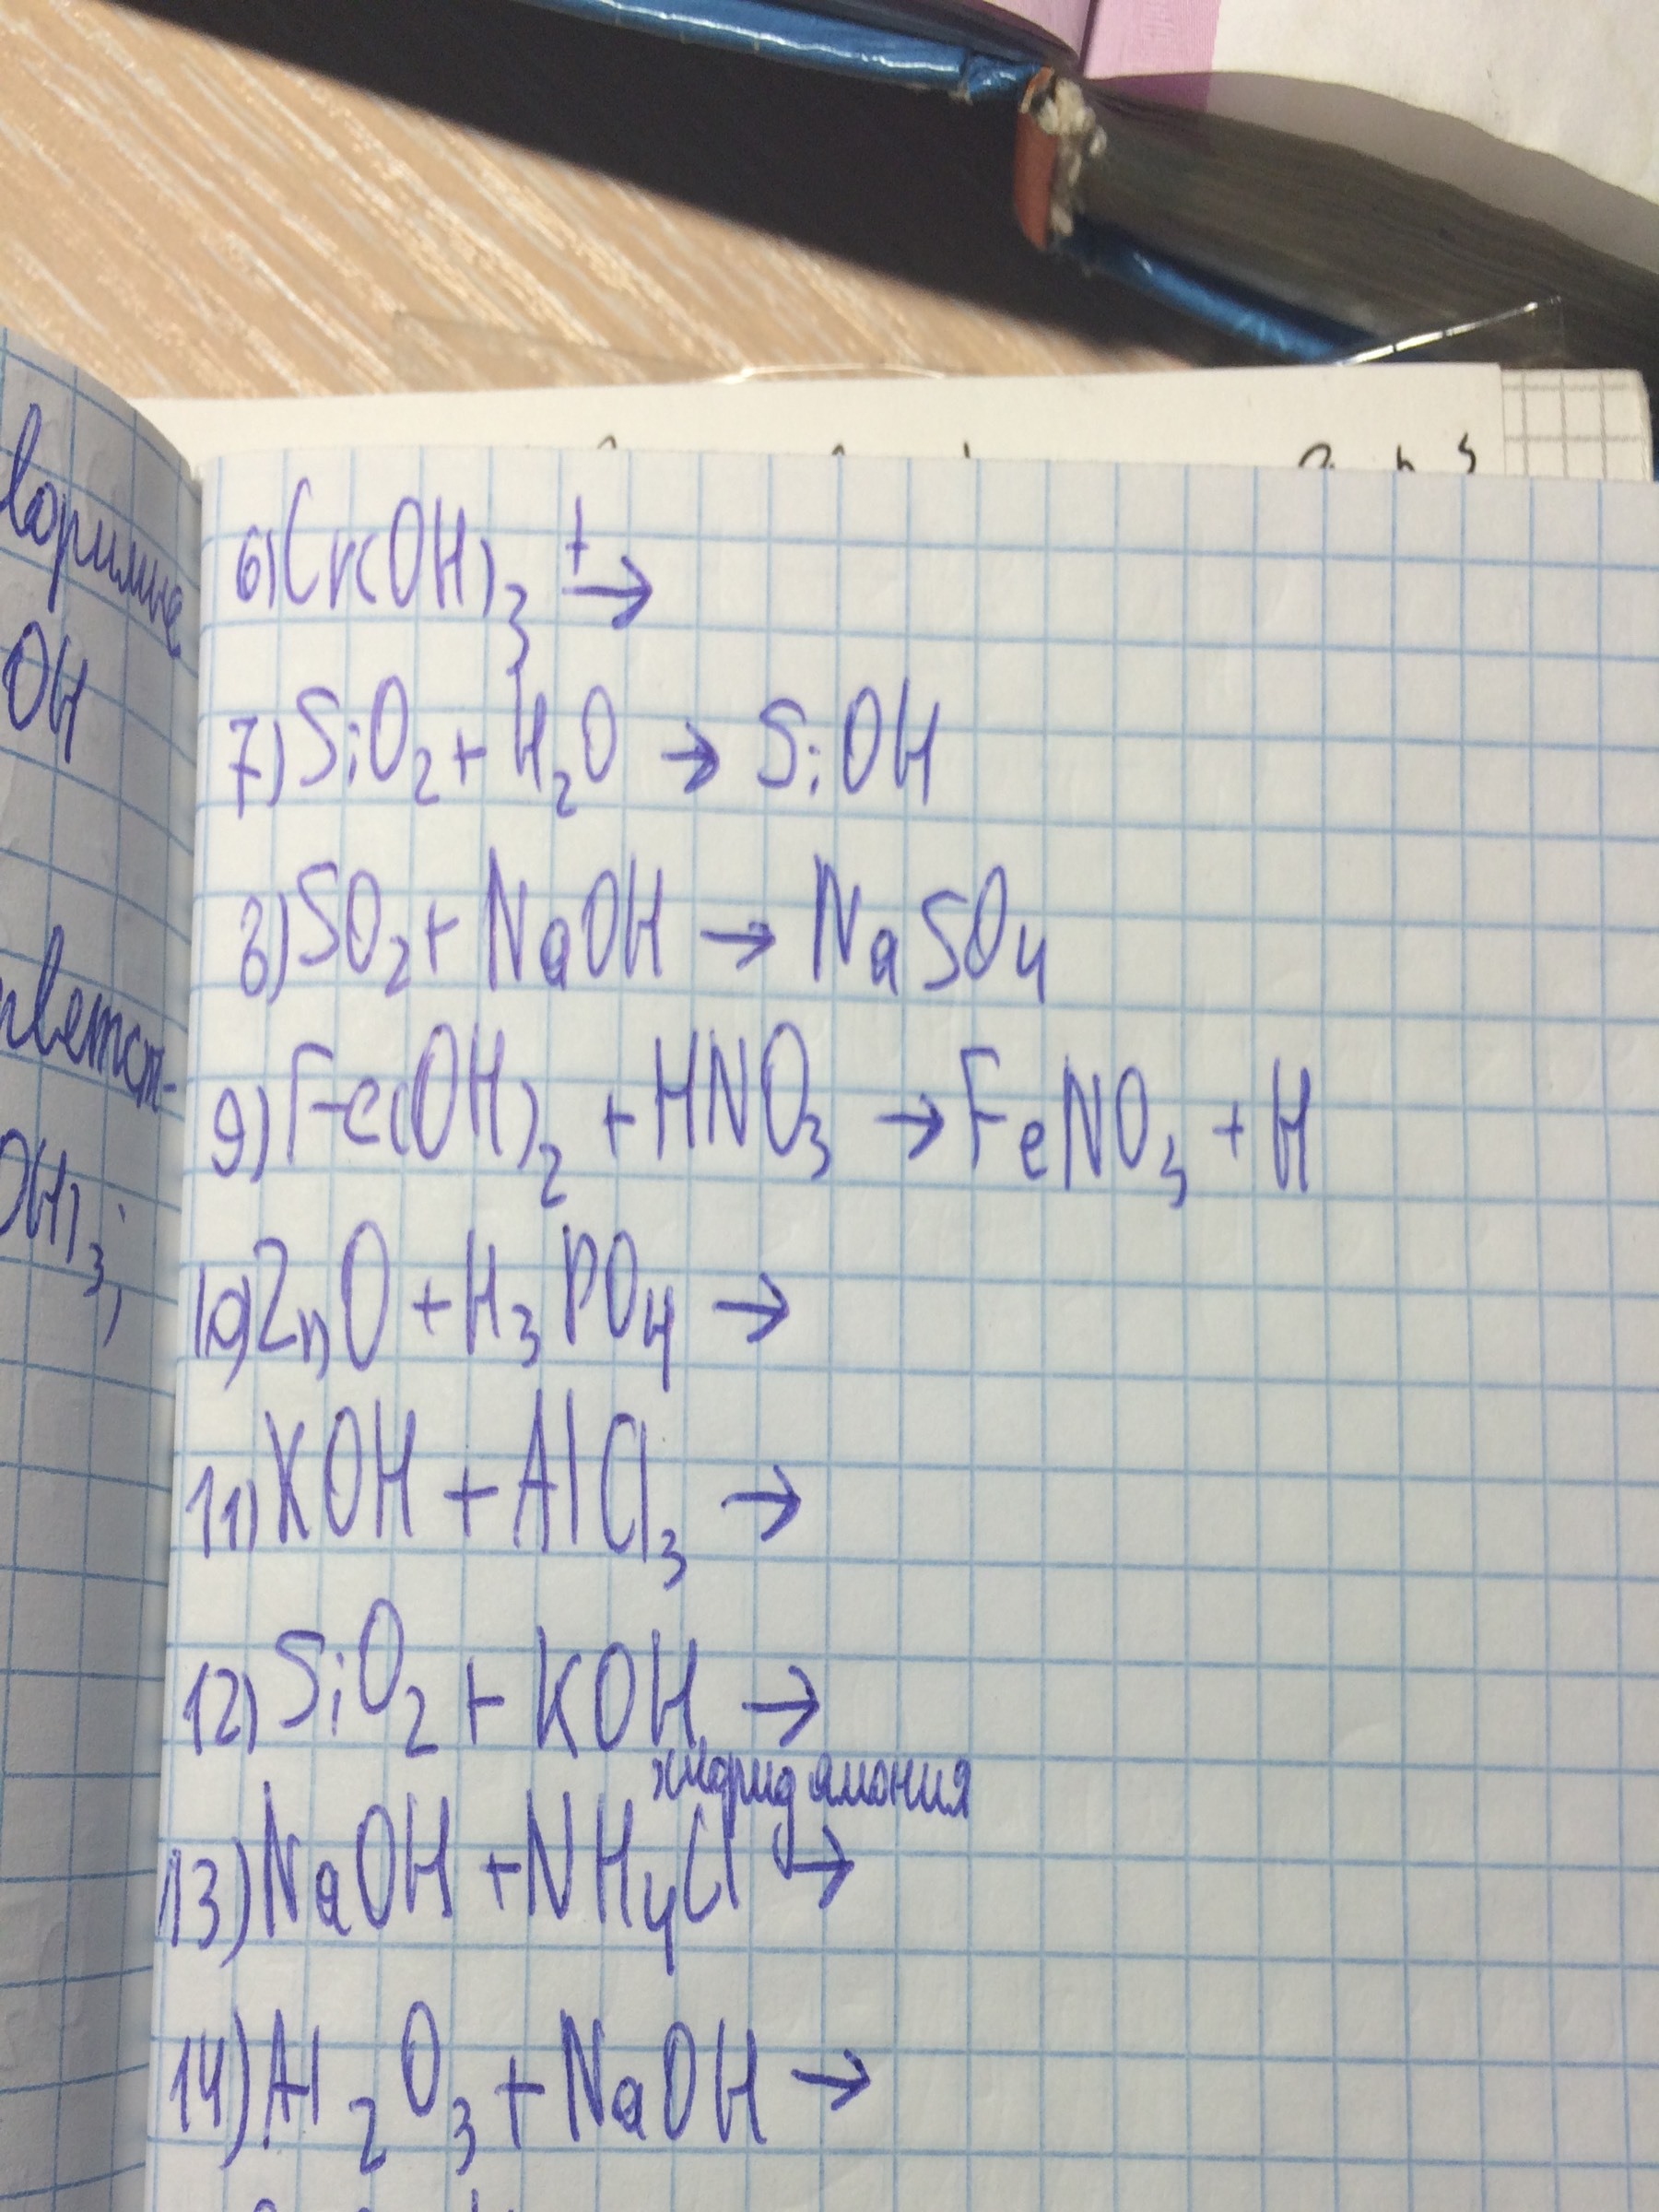 воримые
OH
ответст-
OH)₃;
6) Cr(OH)₃ t→
7) SiO₂ + H₂O → SiOH
8) SO₂ + NaOH → NaSO₄
9) Fe(OH)₂ + HNO₃ → FeNO₃ + H
10) ZnO + H₃PO₄ →
11) KOH + AlCl₃ →
12) SiO₂ + KOH →
хлорид амония
13) NaOH + NH₄Cl →
14) Al₂O₃ + NaOH →